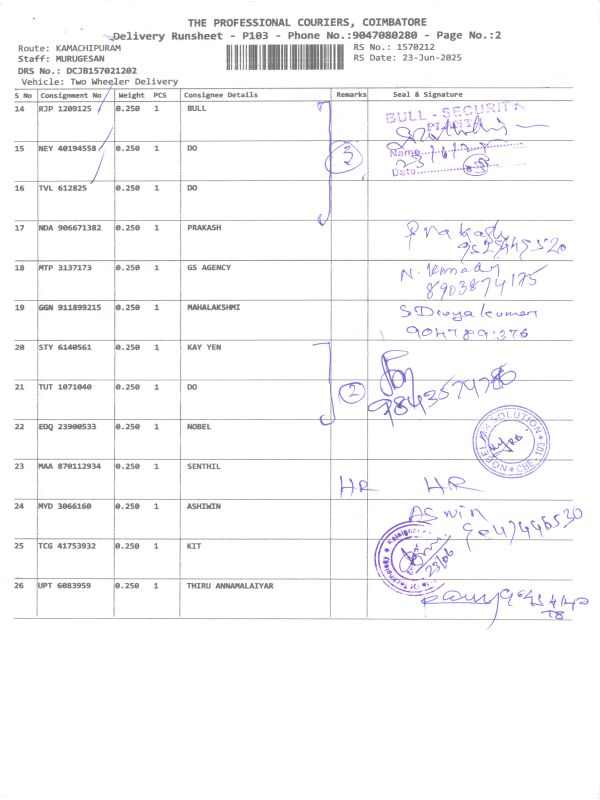 THE PROFESSIONAL COURIERS, COIMBATORE
Delivery Runsheet - P103 - Phone No.:9047080280 - Page No.:2
Route: KAMACHIPURAM
RS No.: 1570212
Staff: MURUGESAN
RS Date: 23-Jun-2025
DRS No.: DCJB157021202
Vehicle: Two Wheeler Delivery
S No Consignment No Weight PCS Consignee Details Remarks Seal & Signature
14 RJP 1209125 0.250 1 BULL
BULL - SECURITY
15 NEY 40194558 0.250 1 DO 3
Name
Date
16 TVL 612825 0.250 1 DO
17 NDA 906671382 0.250 1 PRAKASH Prakash
18 MTP 3137173 0.250 1 GS AGENCY
8903874175
19 GGN 911899215 0.250 1 MAHALAKSHMI S Divyakumar
9047891376
20 STY 6140561 0.250 1 KAY YEN
21 TUT 1071040 0.250 1 DO 2
9843574786
22 EDQ 23900533 0.250 1 NOBEL
23 MAA 870112934 0.250 1 SENTHIL HR HR
24 MYD 3066160 0.250 1 ASHIWIN Aswin
9047446530
25 TCG 41753932 0.250 1 KIT
23/06
26 UPT 6083959 0.250 1 THIRU ANNAMALAIYAR